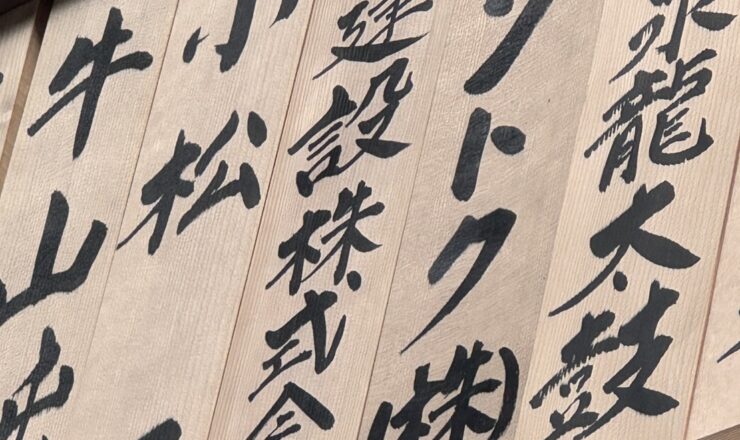 龍太鼓
トク(株)
建設株式会
小松
牛山